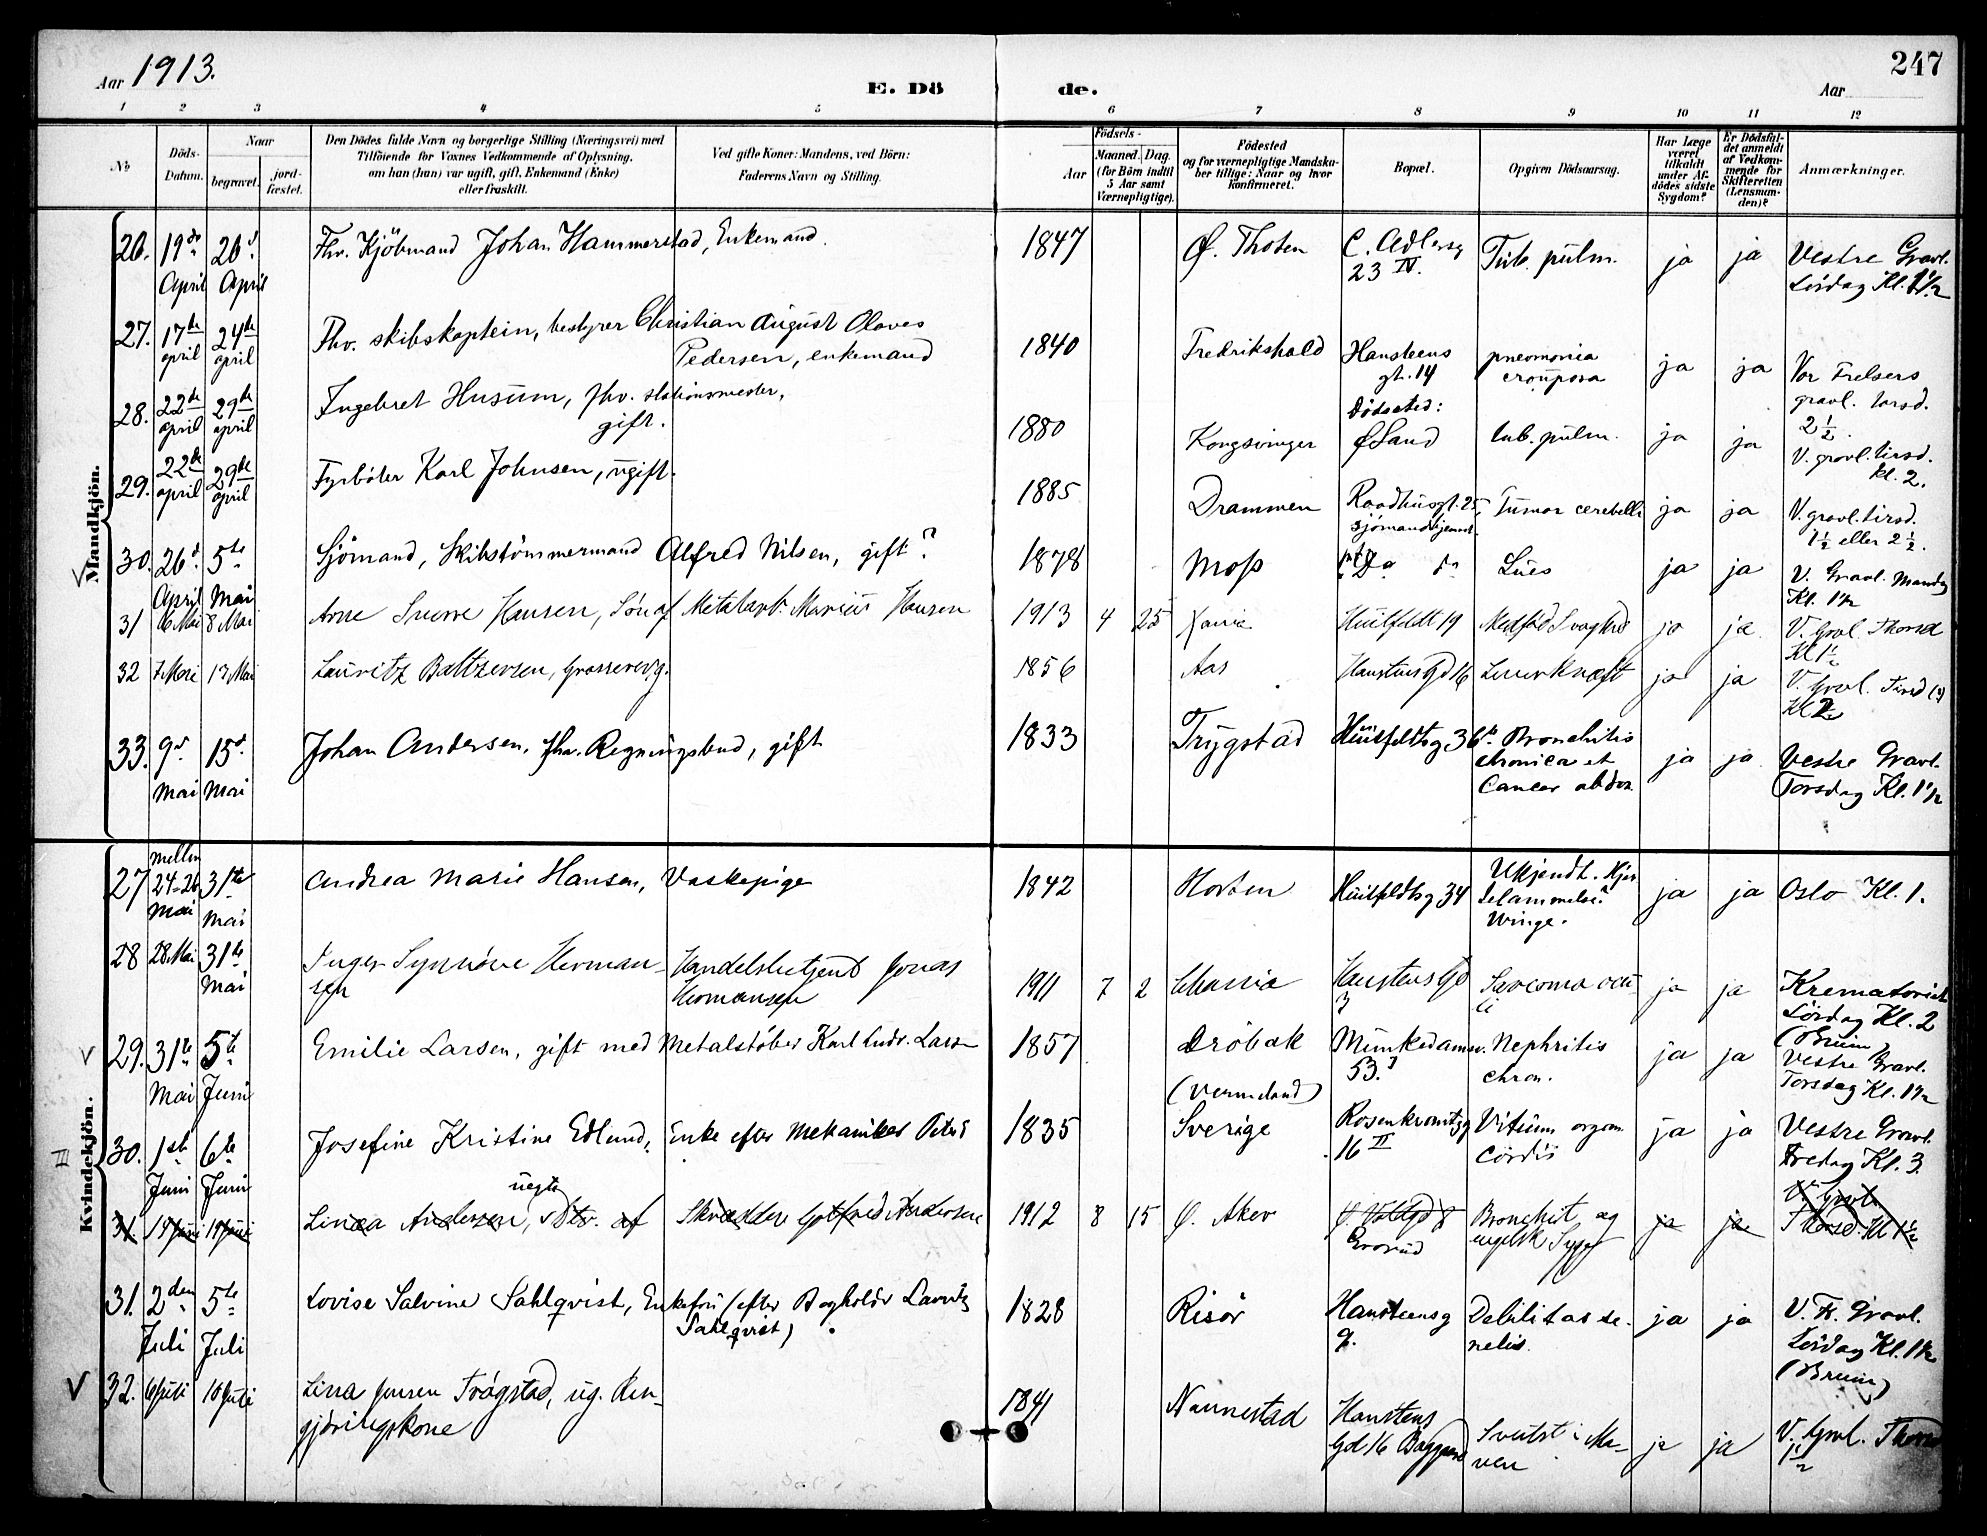 Aar 1913.
E. Dö de.
Aar
247
1 2 3 4 5 6 7 8 9 10 11 12
No
Döds-Datum.
Naar
begravet.
jord-fæstet.
Den Dödes fulde Navn og borgerlige Stilling (Næringsvei) med
Tilföiende for Voxnes Vedkommende af Oplysning,
om han (hun) var ugift, gift, Enkemand (Enke)
eller fraskilt.
Ved gifte Koner: Mandens, ved Börn:
Faderens Navn og Stilling.
Födsels-
Aar
Maaned. Dag.
(for Börn indtil
5 Aar samt
Værnepligtige).
Födested
og for værnepligtige Mandska-
ber tillige: Naar og hvor
konfirmeret.
Bopæl.
Opgiven Dödsaarsag.
Har Læge
været
tilkaldt
under Af-
dödes sidste
Sygdom?
Er Dödsfal-
det anmeldt
af Vedkom-
mende for
Skifteretten
(Lensman-
den)?
Anmærkninger.
Mandkjön.
26. 19de April 26d April Fhv. Kjöbmand Johan Hammerstad, Enkemand. 1847 Ø. Thoten C. Adlersg 23 IV. Tub. pulm. ja ja Vestre Gravl. Lördag Kl. 1 1/2
27. 17de april 24de april Fhv. skibskaptein, bestyrer Christian August Olaves
Pedersen, enkemand 1840 Fredrikshald Hansteens gt. 14 pneomonia crouposa ja ja Vor Frelsers gravl. torsd. 2 1/2.
28. 22de april 29de april Ingebret Husum, fhv. stationsmester,
gift. 1880 Kongsvinger Dödssted: Ø Sand tub. pulm. ja ja V. gravl. tirsd. kl. 2.
29. 22de april 29de april Fyrböter Karl Johnsen, ugift. 1885 Drammen Raadhusgt. 25, sjömandshjemmet. Tumor cerebelli ja ja V. gravl. tirsd. 1 1/2 eller 2 1/2.
30. 26d April 5te Mai Sjömand, Skibstömmermand Alfred Nilsen, gift? 1878 Moss Lues ja ja V. Gravl. Mandag Kl. 1 1/2
31 6 Mai 8 Mai Arne Sverre Hansen, Sön af Metalarb. Marius Hansen 1913 4 25 Huitfeldt 19 Medfød Svaghed ja ja V. Gravl. Thorsd Kl 1 1/2
32 7 Mai 13 Mai Lauritz Baltzersen, Grosserer, g. 1856 Aas Hanstens Gd 16 Leverkræft ja ja V. Gravl. Tirsd Kl 2
33. 9d Mai 15d Mai Johan Andersen, fhv. Regningsbud, gift 1833 Trygstad Huitfeldtsg 36 Bronchitis chronica et Cancer abdom. ja ja Vestre Gravl. Torsdag Kl. 1 1/2
Kvindekjön.
27 mellem 24-26 Mai 31te Mai Andrea Marie Hansen, Vaskepige 1842 Horten Huitfeldtsg 34 Ukjendt. Hjertelammelse? Winge. ja ja Oslo Kl. 1.
28 28 Mai 31te Mai Inger Synnöve Herman-
sen Handelsbetjent Jonas
Hermansen 1911 7 2 Hanstens Gd 3 Sarcoma oculi ja ja Krematoriet Lördag Kl. 2 (Bruun)
29. 31te Mai 5te Juni Emilie Larsen, gift med Metalstöber Karl Ludv. Larsen 1857 Dröbak Munkedamsv. 53. Nephritis chron. ja ja Vestre Gravl. Torsdag Kl. 1 1/2
III 30. 1ste Juni 6te Juni Josefine Kristine Edlund, Enke efter Mekaniker 1835 (Vermeland) Sverige Rosenkrantzg 16 II Vitium organ cordis ja ja Vestre Gravl. Fredag Kl. 3.
31. 14 Juni 19 Juni Linea Andersen, uegte Dtr. af Skrædder Gotfred Andersen 1912 8 15 Ø. Aker Ø. Voldgd 8 Grorud Bronchit og engelsk Syge ja ja V. Gravl. Thorsd. Kl 1 1/2
31. 2den Juli 5te Juli Lovise Salvine Sahlqvist, Enkefru (efter Bogholdr Lauritz
Sahlqvist) 1828 Risör Hansteensg 9. Debilitas senelis. ja ja V. Fr. Gravl. Lördag Kl. 1 1/2 (Bruun)
32. 6 Juli 10 Juli Lina Jensen Trögstad, ug. Ren-
gjöringskone 1841 Nannestad Hanstens Gd 16 Baggaard Svulst i Maven ja ja V. Gravl. Thorsd 1 1/2